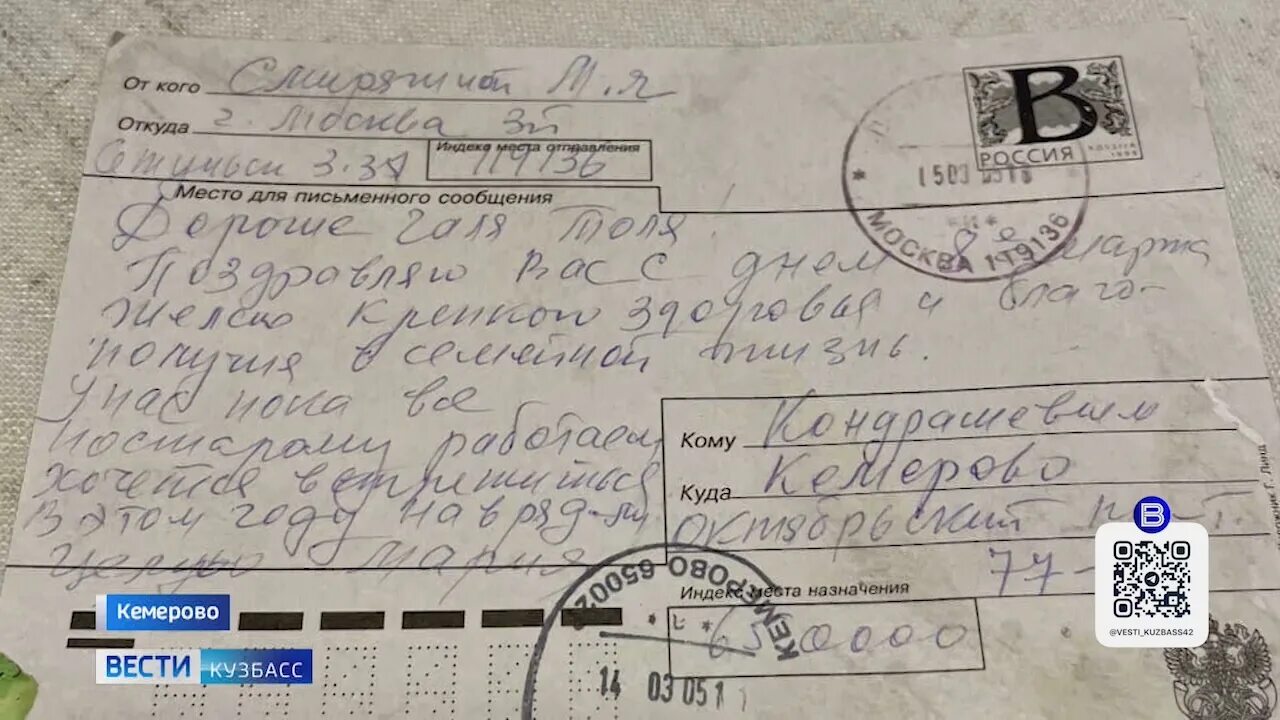 От кого Смиряжной М.Я
Откуда г. Москва 3й
Сетуньск 3.
Индекс места отправления
119136
В
РОССИЯ
МОСКВА 119136
Место для письменного сообщения
Дорогие Галя Толя
Поздравляю Вас с днем 8е марта
Желаю крепкого здоровья и благо-
получия в семейной жизнь.
У нас пока все
постарому работаем
хочется встретиться
В этом году наврядли
Целую Мария
Кому Кондрашевым
Куда Кемерово
Октябрьский пр-т
77-
Индекс места назначения
650000
КЕМЕРОВО 650002
14 03 05 1
Кемерово
ВЕСТИ КУЗБАСС
В
@VESTI_KUZBASS42